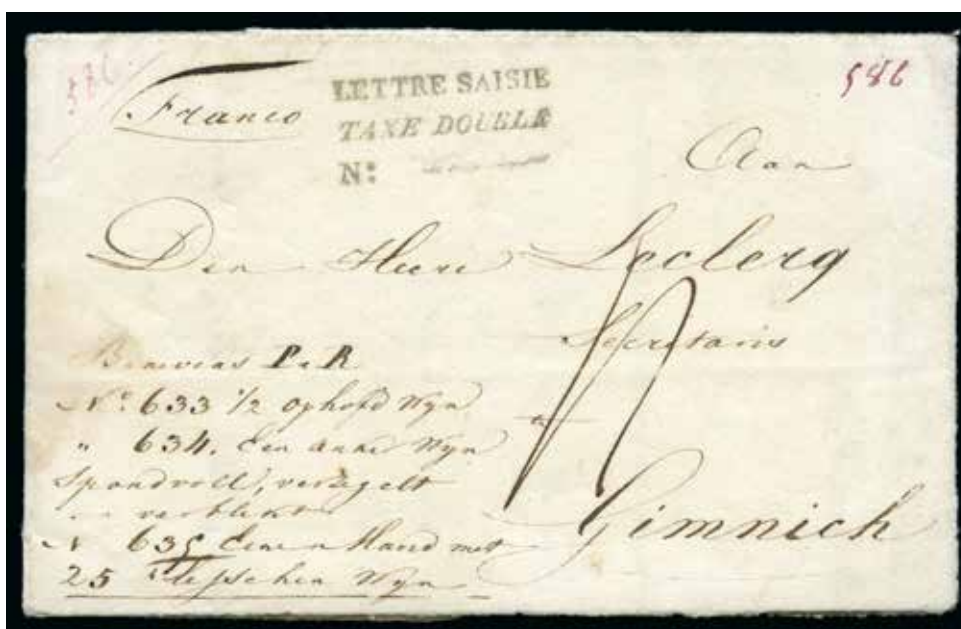 586
586
Franco
LETTRE SAISIE
TAXE DOUBLE
N:
Aan
Den Heere Leclerq
Secretaris
te
Gimnich
P R
No 633 1/2 ophofd Wyn
" 634. Een anker Wyn
Spondvoll, versegelt
N 635 Eenen Mand met
25 Wyn